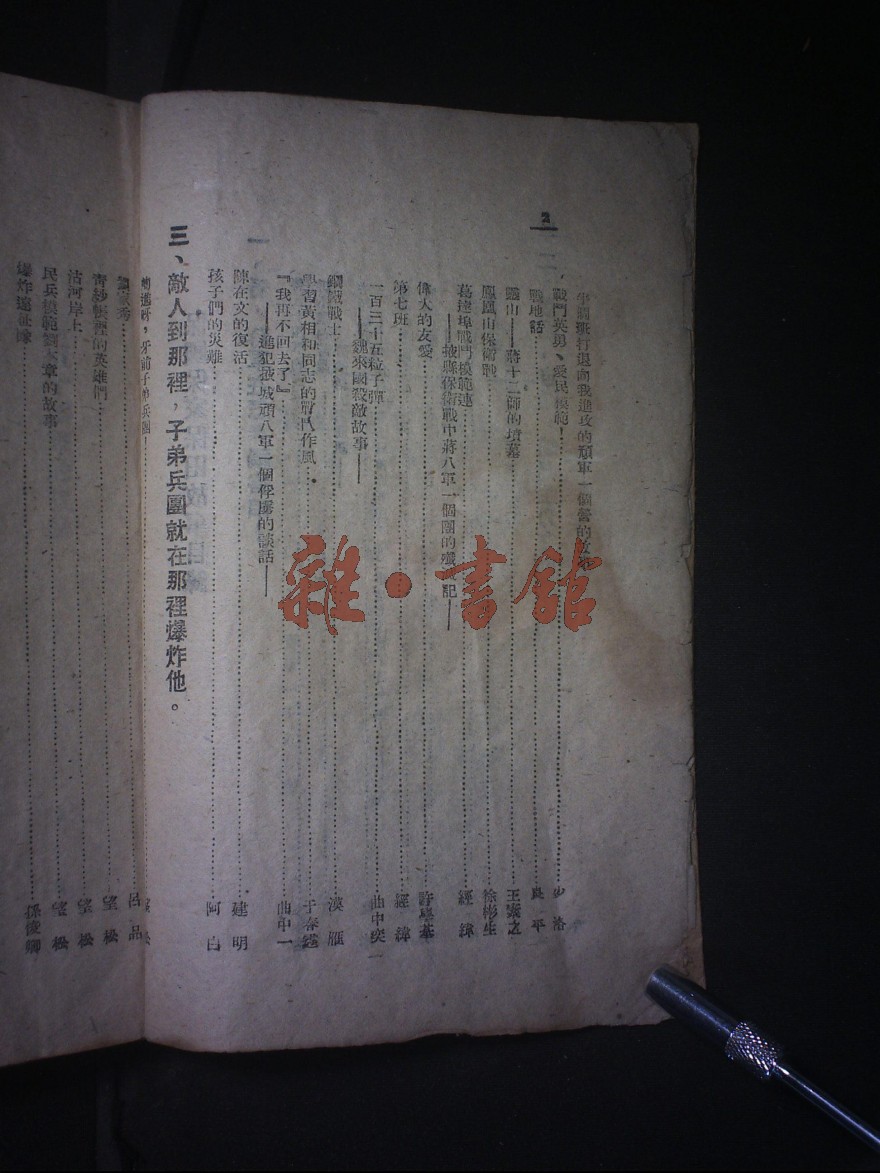 2
戰鬥英勇、愛民模範！
戰地話 良平
靈山——蔣十二師的墳墓 王黎之
鳳凰山保衛戰 徐彬生
葛達埠戰鬥模範連 經緯
——掖縣保衛戰中蔣八軍一個團的殲 記——
偉大的友愛 許學基
第七班 經緯
一百三十五粒子彈 曲中奕一
——魏來國殺敵故事——
鋼鐵戰士 漠雁
學習黃相和同志的戰鬥作風 于春遂
『我再不回去了』 曲中一
——進犯掖城頑八軍一個俘虜的談話——
陳在文的復活 建明
孩子們的災難 阿白
三、敵人到那裡，子弟兵團就在那裡爆炸他。
牙前子弟兵團！
呂品
青紗帳裡的英雄們 望松
沽河岸上 望松
民兵模範劉本章的故事 望松
爆炸遠征隊 孫俊卿
雜·書館